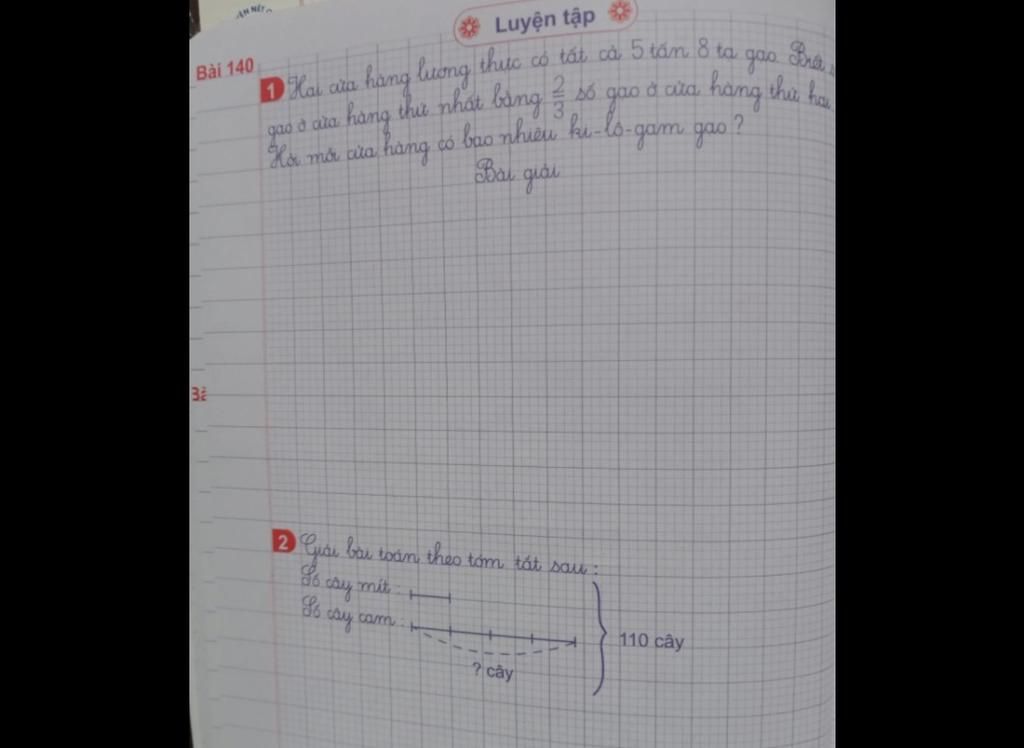 Luyện tập
Bài 140
1 Hai cửa hàng lương thực có tất cả 5 tấn 8 tạ gạo. Biết
gạo ở cửa hàng thứ nhất bằng 2/3 số gạo ở cửa hàng thứ hai
Hỏi mỗi cửa hàng có bao nhiêu ki-lô-gam gạo?
Bài giải
2 Giải bài toán theo tóm tắt sau:
Số cây mít:
Số cây cam:
110 cây
? cây